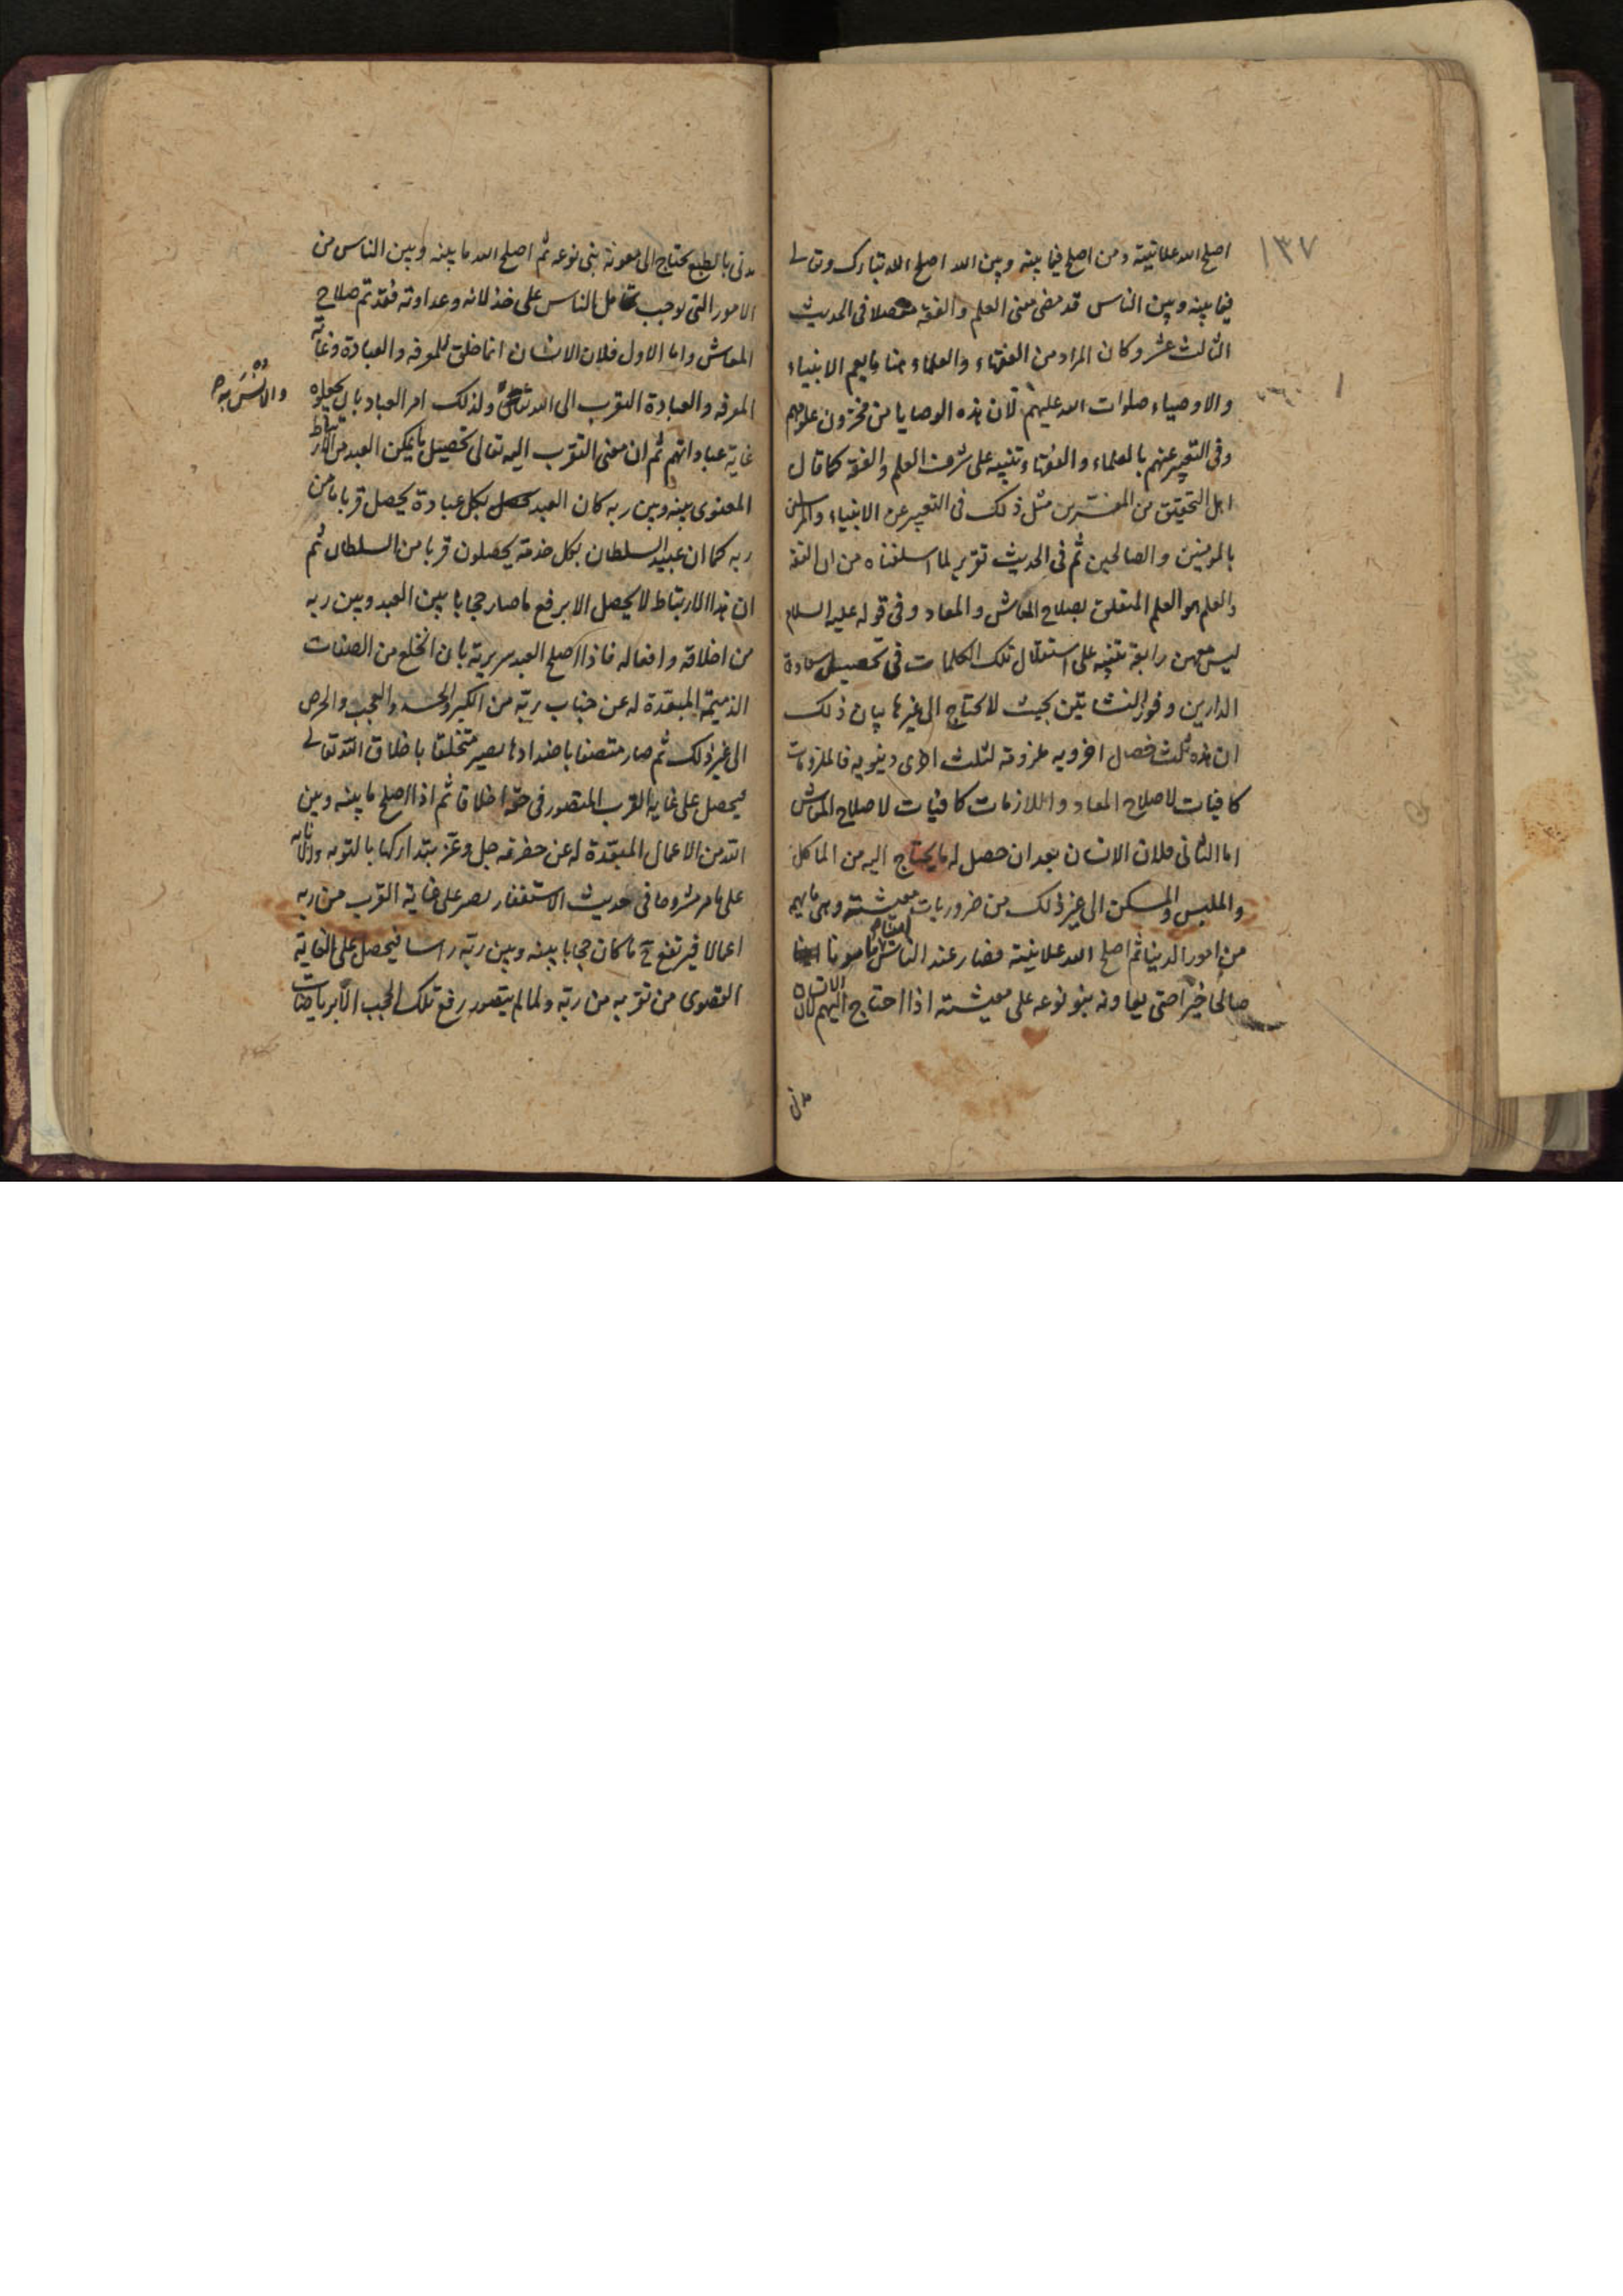 ١٣٧
اصلح الله علانيته ومن اصلح فيما بينه وبين الله اصلح الله تبارك وتعالى
فيما بينه وبين الناس قد مضى معنى العلم والفقه مفصلا فى الحديث
الثالث عشر وكان المراد من الفقهاء والعلماء هنا ما يعم الانبياء
والاوصياء صلوات الله عليهم لان هذه الوصايا من مخزون علومهم
وفى التعبير عنهم بالعلماء والفقهاء تنبيه على شرف العلم والفقه كما قال
اهل التحقيق من المفسرين مثل ذلك فى التعبير عن الانبياء والمرسلين
بالمومنين والصالحين ثم فى الحديث تقرير لما اسلفناه من ان الفقه
والعلم هو العلم المتعلق بصلاح المعاش والمعاد وفى قوله عليه السلام
ليس معهن رابعة تنبيه على استقلال تلك الكلمات فى تحصيل سعادة
الدارين وفوز النشاتين بحيث لا يحتاج الى غيرها بيان ذلك
ان هذه ثلث خصال اخرويه ملزومة لثلث اخرى دنيويه فالملزومات
كافيات لاصلاح المعاد واللازمات كافيات لاصلاح المعاش
اما الثانى فلان الانسان بعد ان حصل له ما يحتاج اليه من الماكل
والملبس والمسكن الى غير ذلك من ضروريات معيشته وهى ما يهم
من امور الدنيا ثم اصلح الله علانيته فصار عند الناس مامونا
صالحا خيرا حتى يعاونه بنو نوعه على معيشته اذا احتاج اليهم لان الانسان
مدنى
مدنى بالطبع يحتاج الى معونة بنى نوعه ثم اصلح الله ما بينه وبين الناس من
الامور التى توجب تحامل الناس على خذلانه وعداوته فقد تم صلاح
المعاش واما الاول فلان الانسان انما خلق للمعرفه والعبادة وغاية
المعرفه والعبادة التقرب الى الله تعالى ولذلك امر العباد بان يجعلوه
والانس به
غاية عباداتهم ثم ان معنى التقرب اليه تعالى تحصيل ما يمكن العبد من الارتباط
المعنوى بينه وبين ربه كان العبد بكل عبادة يحصل قربا ما من
ربه كما ان عبيد السلطان بكل خدمة يحصلون قربا من السلطان ثم
ان هذا الارتباط لا يحصل الا برفع ما صار حجابا بين العبد وبين ربه
من اخلاقه وافعاله فاذا اصلح العبد سريرته بان انخلع من الصفات
الذميمة المبعدة له عن جناب ربه من الكبر والحسد والعجب والحرص
الى غير ذلك ثم صار متصفا باضدادها يصير متخلقا باخلاق الله تعالى
فيحصل على غاية القرب المتصور فى حقه اخلاقا ثم اذا اصلح ما بينه وبين
الله من الاعمال المبعدة له عن حضرته جل وعز بتداركها بالتوبه والانابه
على ما مر مشروحا فى حديث الاستغفار يصر على غاية القرب من ربه
اعمالا فيرتفع ح ما كان حجابا بينه وبين ربه راسا فيحصل على الغاية
القصوى من تقربه من ربه ولما لم يتصور رفع تلك الحجب الا برياضات